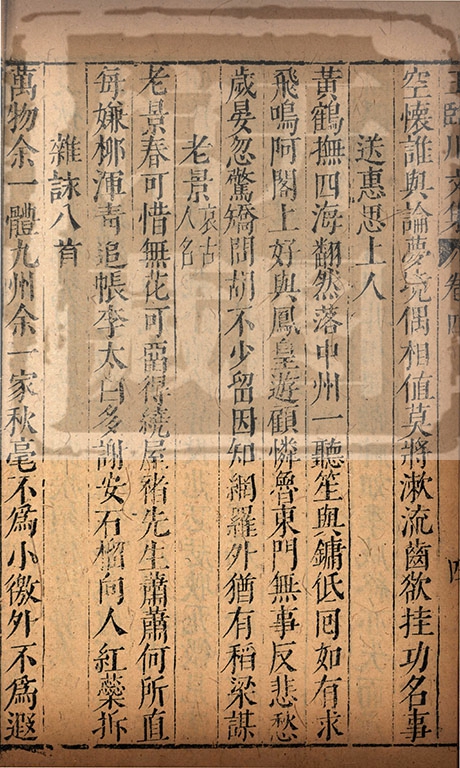 王臨川文集 卷四 四
空懷誰與論夢境偶相值莫將漱流齒欲挂功名事
送惠思上人
黃鶴撫四海翻然落中州一聽笙與鏞低囘如有求
飛鳴阿閣上好與鳳皇遊顧憐魯東門無事反悲愁
歲晏忽驚矯問胡不少留因知網羅外猶有稻梁謀
老景哀古人名
老景春可惜無花可畱得繞屋褚先生蕭蕭何所直
每嫌栁渾靑追帳李太白多謝安石榴向人紅蘂拆
雜詠八首
萬物余一體九州余一家秋毫不爲小徼外不爲遐